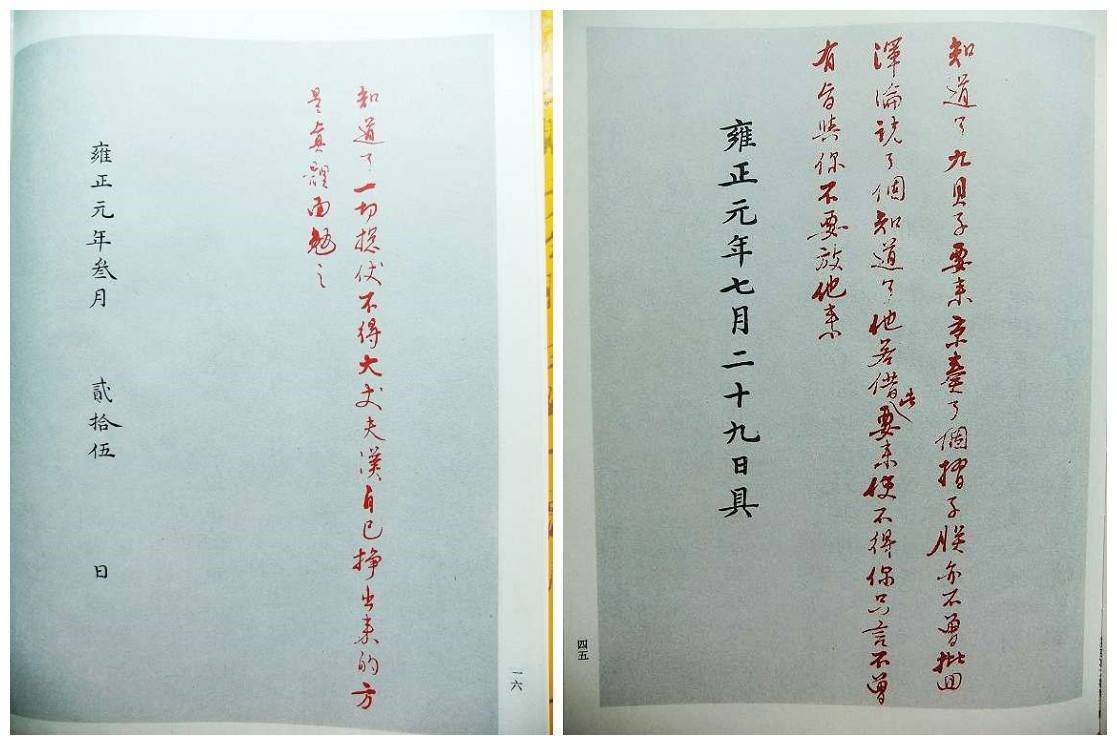 知道了一切揔仗不得大丈夫漢自己挣出来的方
是真體面勉之
雍正元年叁月 貳拾伍 日
一六
知道了九貝子要来京奏了個摺子朕亦不曾批回
渾淪說了個知道了他若借此要来使不得你只言不曾
有旨與你不要放他来
雍正元年七月二十九日具
四五